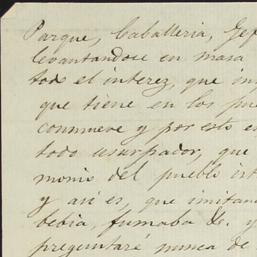 Parque, Caballeria, Gef
levantandose en masa
todo el interez, que in
que tiene en los pue
conmueve y por esto es
todo usurpador, que
monio del pueblo ist
y asi es, que imitan
bebia, fumaba &. y
preguntare nunca de